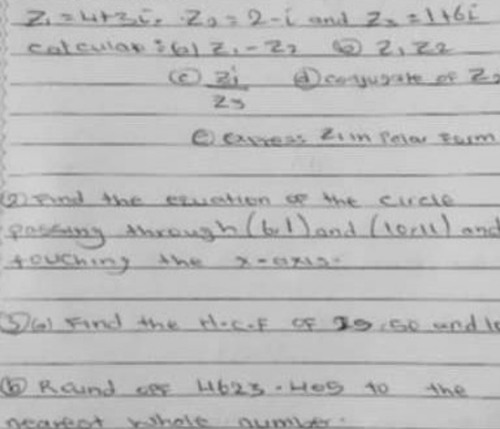 Z₁ = 4+3i, Z₂ = 2-i and Z₃ = 1+6i
calculate: (a) Z₁ - Z₂ (b) Z₁ Z₂
(c) Z₁/Z₃ (d) conjugate of Z₂
(e) express Z₁ in Polar Form
(2) Find the equation of the circle
passing through (6,1) and (10,11) and
touching the x-axis.
(3)(a) Find the H.C.F of 25, 50 and
(b) Round off 4623.405 to the
nearest whole number.